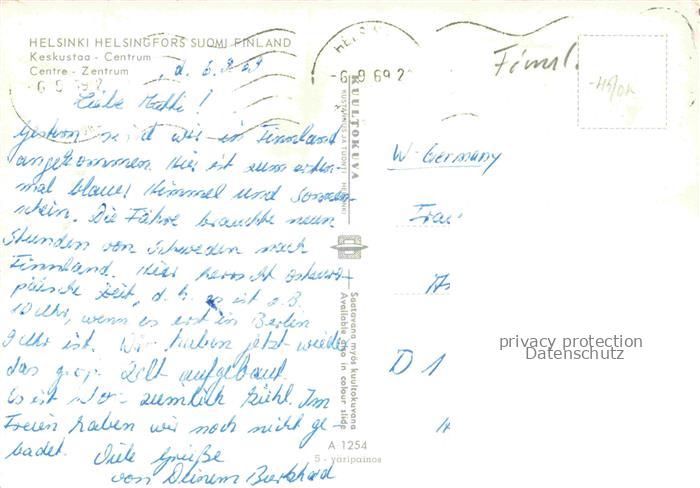 HELSINKI HELSINGFORS SUOMI FINLAND
Keskustaa - Centrum
Centre - Zentrum
, d. 6.9.69
HELSI
-6.9.69.2
-6.9.69.2
Finnl.
Gestern seid wir in Finnland
angekommen. Hier ist zum ersten-
mal blauer Himmel und Sonnen-
schein. Die Fähre brauchte neun
Stunden von Schweden nach
Finnland. Hier herrscht osteuro-
päische Zeit, d. h. es ist z. B.
10 Uhr, wenn es erst in Berlin
9 Uhr ist. Wir haben jetzt wieder
das große Zelt aufgebaut.
Es ist ziemlich kühl. Im
Freien haben wir noch nicht ge-
badet. Viele Grüße
von Deinem Burkhard
KUULTOKUVA
KUSTANNUS JA TUONTI HELSINKI
Saatavana myös kuultokuvana
Available also in colour slide
A 1254
5 - väripainos
W-Germany
Frau
D 1
privacy protection
Datenschutz